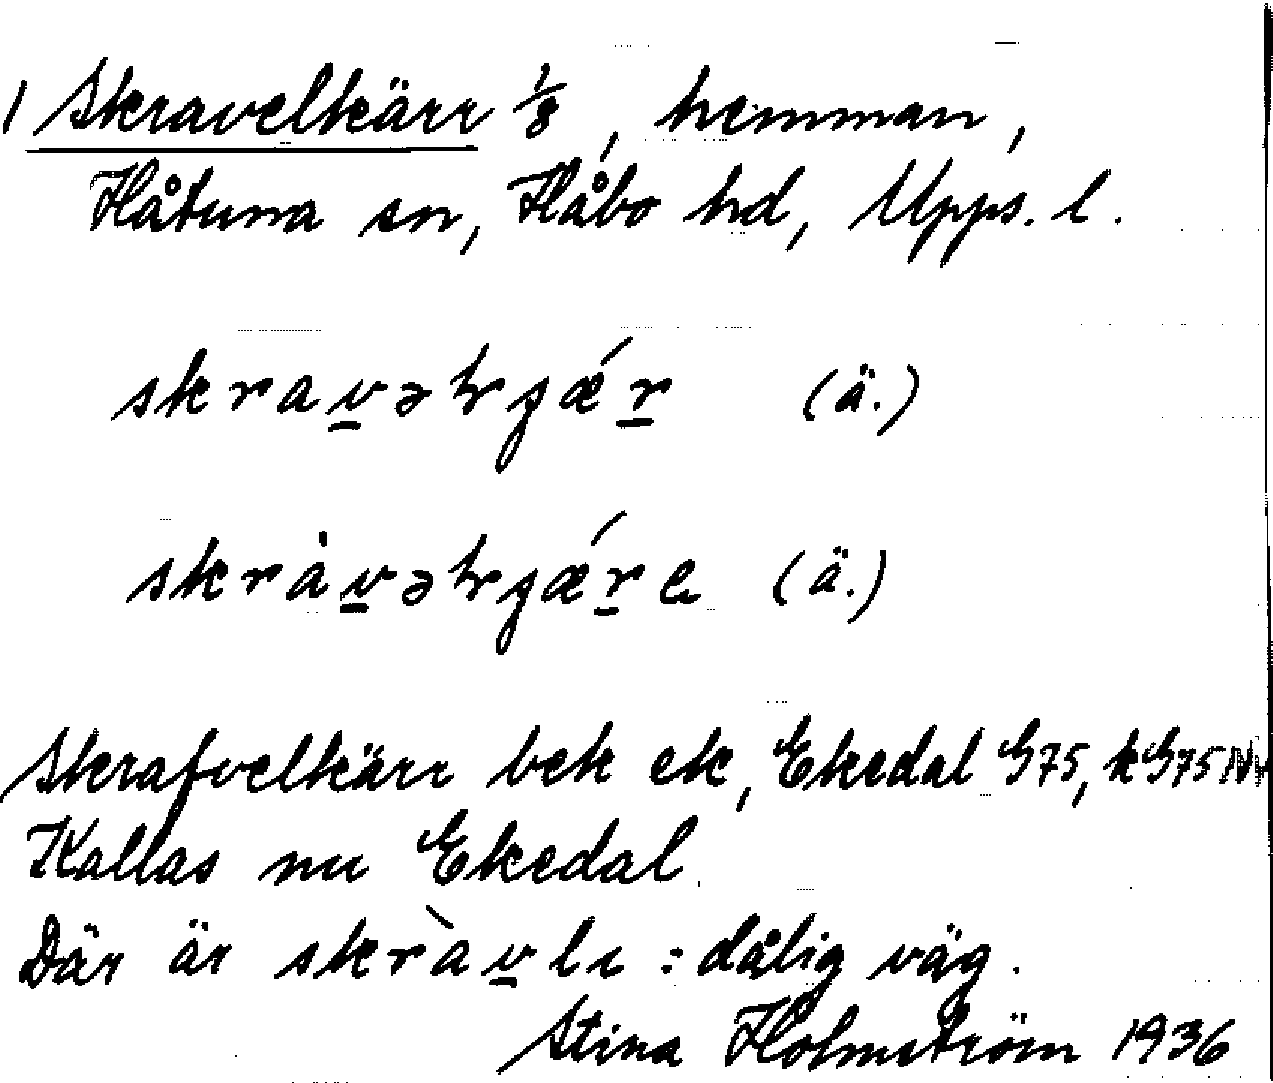 1 Skravelkärr 1/8, hemman,
Håtuna sn, Håbo hd, Upps. l.
(ä.)
(ä.)
Skrafvelkärr bek ek, Ekedal G75, kG75
Kallas nu Ekedal.
Där är skràvlı : dålig väg.
Stina Holmström 1936